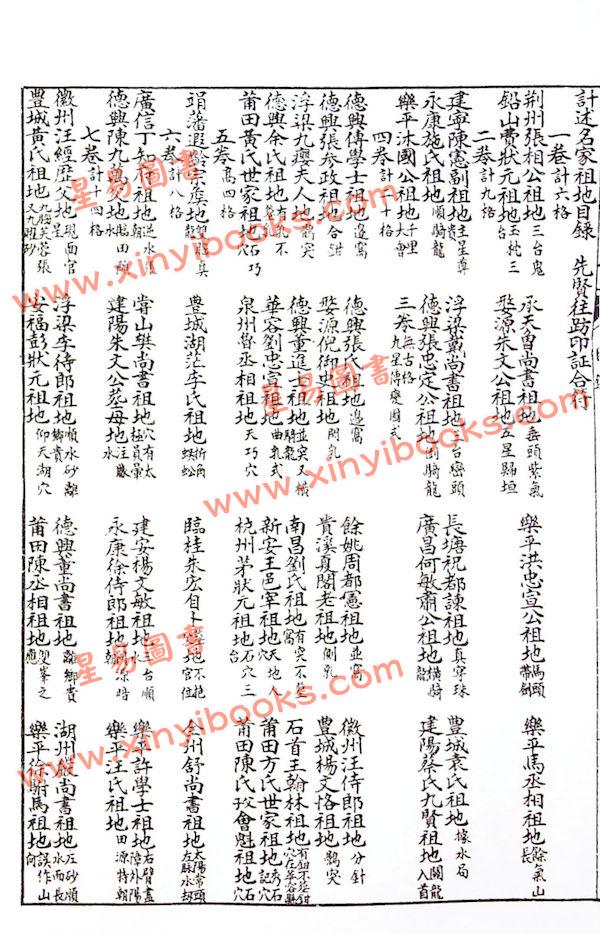 計述名家祖地目錄 先賢往蹟印証合符
一卷計六格
荆州張相公祖地三台鬼 承天曾尚書祖地無頭紫氣 樂平洪忠宣公祖地馬頭帶劍 樂平馬丞相祖地餘氣山長
鉛山費狀元祖地玉枕三台 婺源朱文公祖地五星歸垣
二卷計九格
建寧陳憲副祖地主星尊貴 浮梁戴尚書祖地三台巒頭 長塘祝都諫祖地真窩珠 豐城袁氏祖地據水局
永康施氏祖地順騎龍 德興張忠定公祖地倒騎龍 廣昌何敏肅公祖地橫騎龍 建陽蔡氏九賢祖地關龍入首
樂平沐國公祖地千里大會 三卷無古格九星傳變圖式
四卷計二十格
德興傅學士祖地邊窩 德興張氏祖地邊窩 餘姚周都憲祖地並窩 徽州汪侍郎祖地分針
德興張參政祖地合鉗 婺源倪御史祖地閃乳 貴溪夏閣老祖地側乳 豐城楊文恪祖地鶻突
浮梁九瓔夫人地鶻突 德興董進士祖地並突又橫騎龍 南昌劉氏祖地有突不葬窩 石首王翰林祖地有鉗不葬鉗穴在華容縣
德興余氏祖地有乳不葬乳 華容劉忠宣祖地曲乳式 新安王邑宰祖地天地人穴 莆田方氏世家祖地秀石記穴
莆田黄氏世家祖地石巧穴 泉州魯丞相祖地天巧穴 杭州茅狀元祖地石穴三台 莆田陳氏孜會魁祖地石穴
五卷高四格
豐城湖茫李氏祖地折角蜈蚣 臨桂朱宏自 全州舒尚書祖地太陽常頭左脉水刼
六卷計八格
廣信丁知府祖地逆水朝 常山樊尚書祖地穴有太極員暈 建安楊文敏祖地三台順水 樂平許學士祖地右臂盡障外陽
德興陳九萬父地臨田砂水 建陽朱文公葬母地汪廠水 永康徐侍郎祖地朝源暗 樂平汪氏祖地田源特朝
七卷計十四格
徽州汪經歷父地現面官 浮梁李侍郎祖地順水砂離鄉貴 德興董尚書祖地離鄉貴 湖州嚴尚書祖地左砂順水而長
豐城黄氏祖地九腦芙蓉張又九曜砂 安福彭狀元祖地仰天湖穴 莆田陳丞相祖地雙峯之應 樂平徐駙馬祖地誤作山向
星易圖書
www.xinyibooks.com
星易圖書
www.xinyibooks.com
星易圖書
www.xinyibooks.com
星易圖書
www.xinyibooks.com